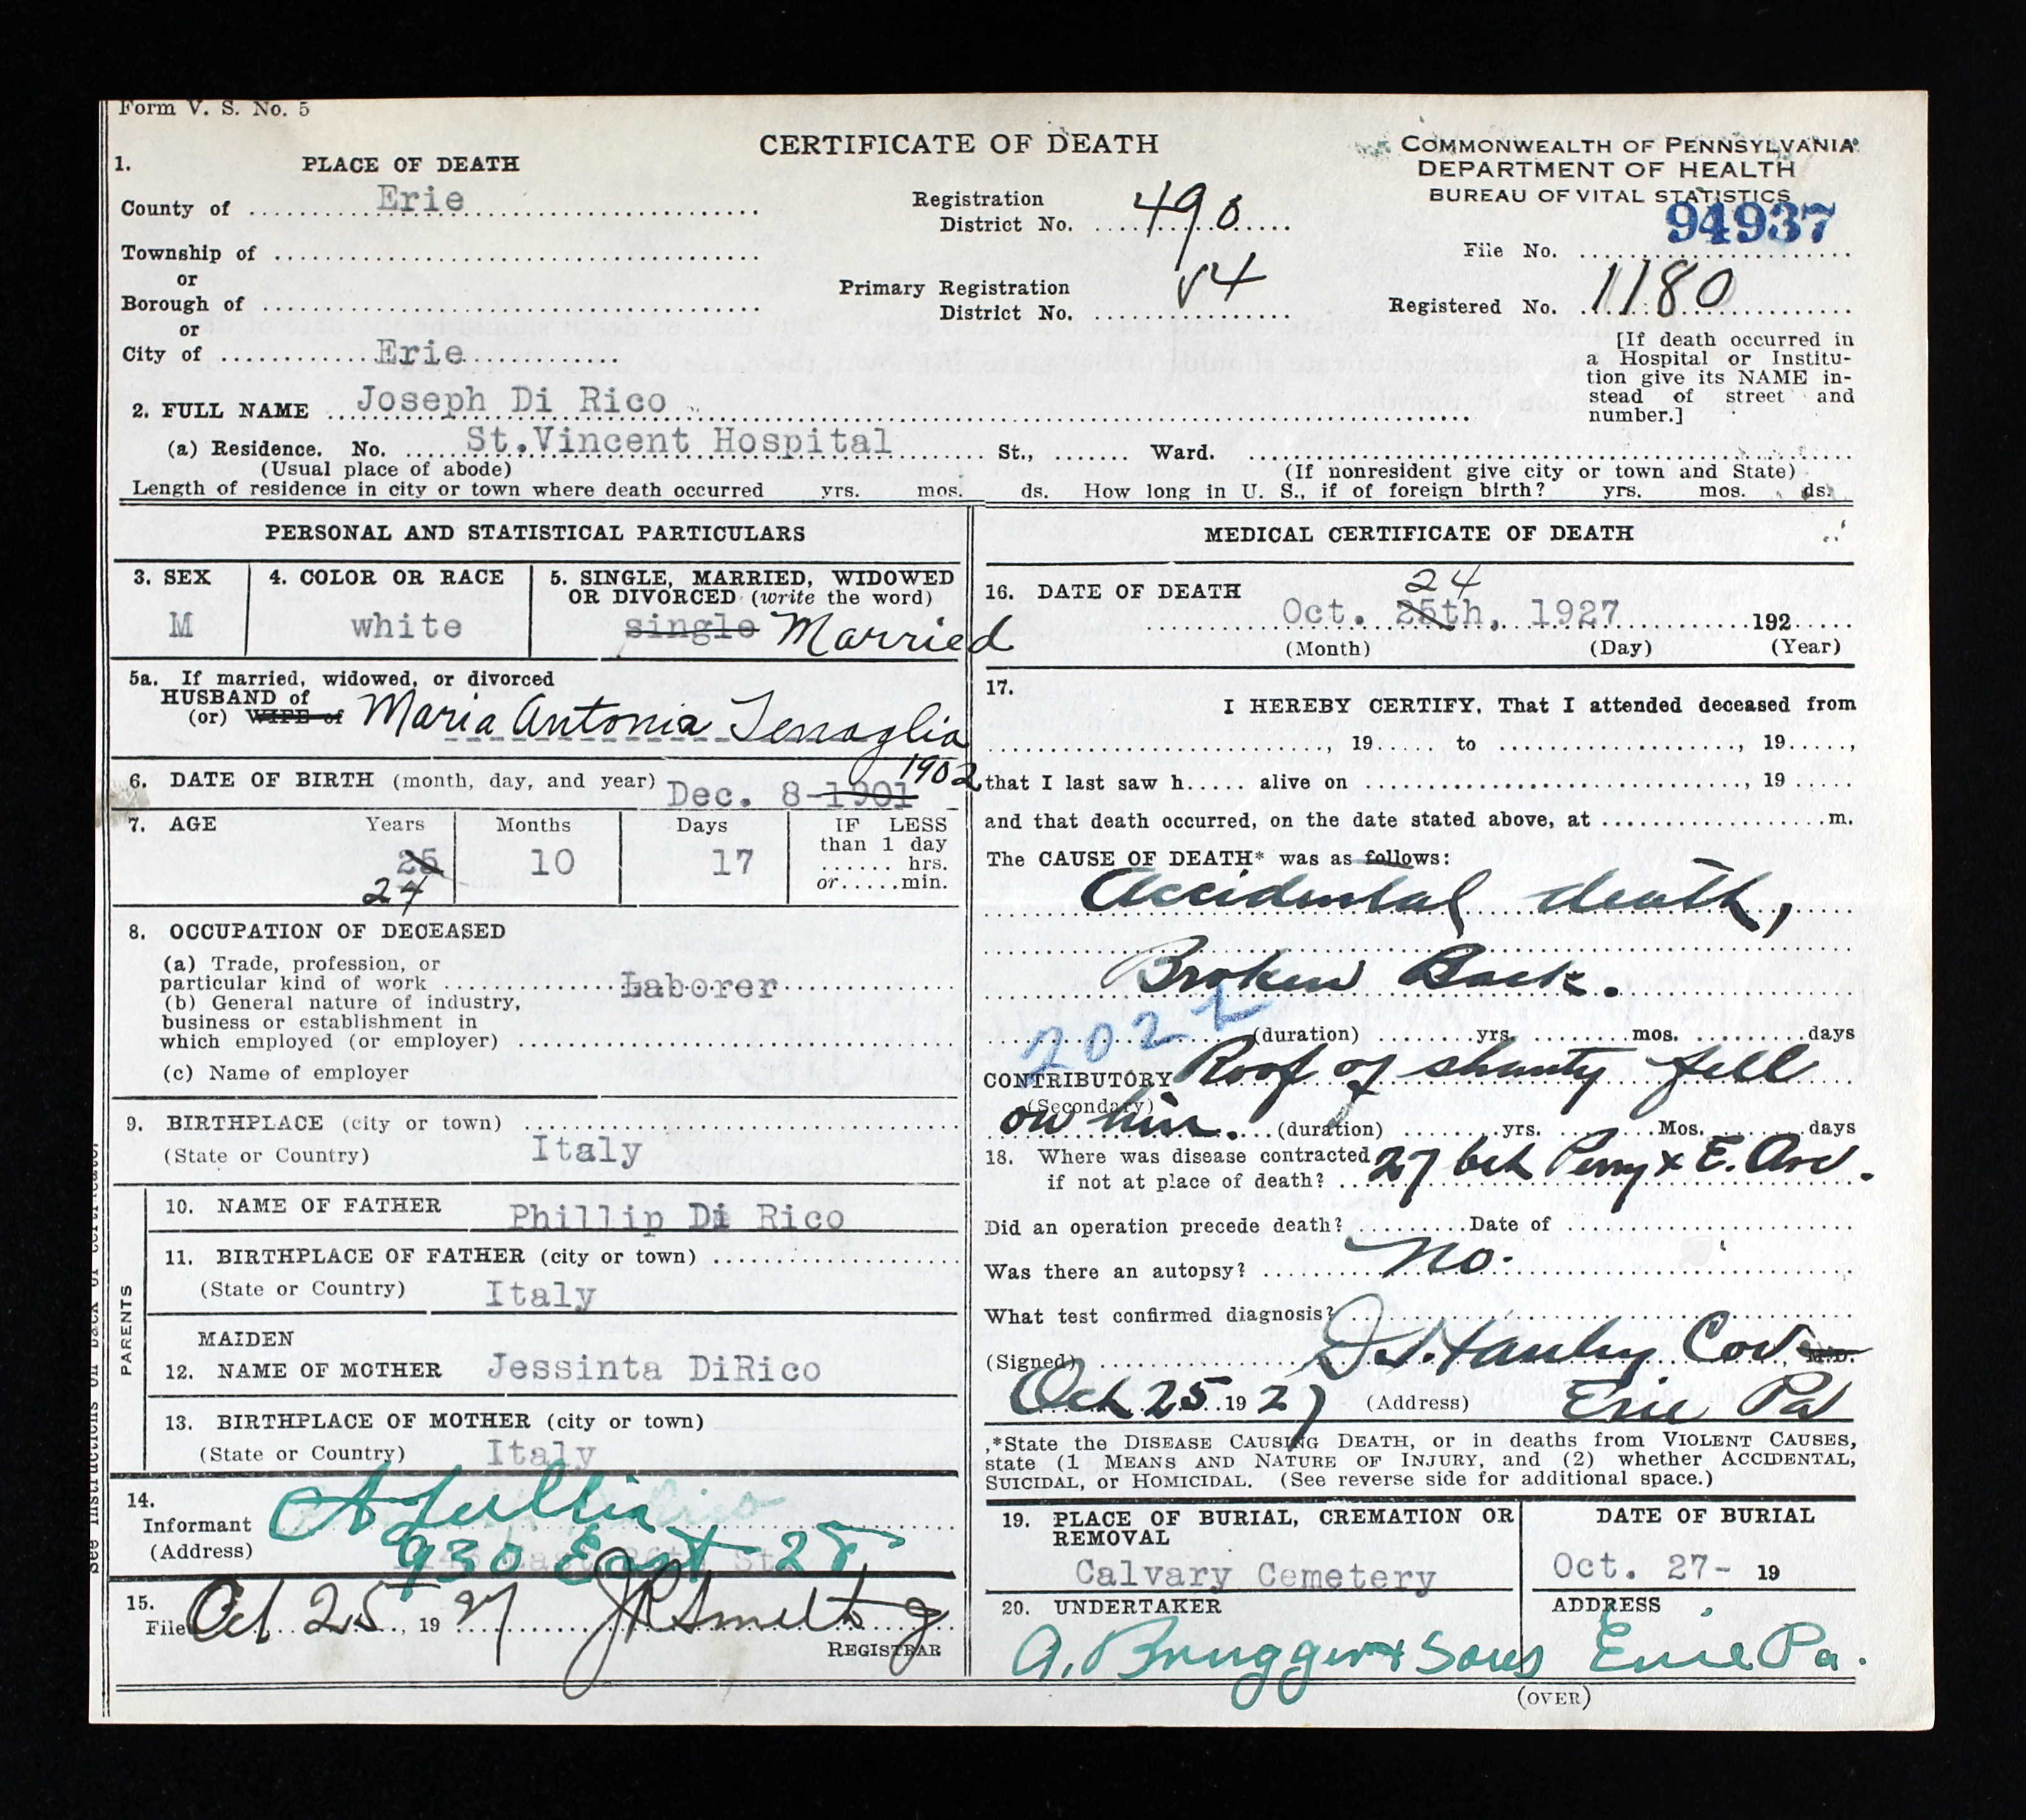 Form V. S. No. 5
CERTIFICATE OF DEATH
COMMONWEALTH OF PENNSYLVANIA
DEPARTMENT OF HEALTH
BUREAU OF VITAL STATISTICS
1. PLACE OF DEATH
County of Erie
Township of
or
Borough of
or
City of Erie
Registration
District No. 490
Primary Registration
District No. 54
94937
File No.
Registered No. 1180
[If death occurred in
a Hospital or Institu-
tion give its NAME in-
stead of street and
number.]
2. FULL NAME Joseph Di Rico
(a) Residence. No. St.Vincent Hospital St., Ward.
(Usual place of abode) (If nonresident give city or town and State)
Length of residence in city or town where death occurred yrs. mos. ds. How long in U. S., if of foreign birth? yrs. mos. ds.
PERSONAL AND STATISTICAL PARTICULARS
3. SEX
M
4. COLOR OR RACE
white
5. SINGLE, MARRIED, WIDOWED
OR DIVORCED (write the word)
single Married
5a. If married, widowed, or divorced
HUSBAND of
(or) WIFE of Maria Antonia Tenaglia
1902
6. DATE OF BIRTH (month, day, and year) Dec. 8-1901
7. AGE Years Months Days
25 10 17
24
IF LESS
than 1 day
hrs.
or min.
8. OCCUPATION OF DECEASED
(a) Trade, profession, or
particular kind of work Laborer
(b) General nature of industry,
business or establishment in
which employed (or employer)
(c) Name of employer
9. BIRTHPLACE (city or town)
(State or Country) Italy
PARENTS
10. NAME OF FATHER Phillip Di Rico
11. BIRTHPLACE OF FATHER (city or town)
(State or Country) Italy
MAIDEN
12. NAME OF MOTHER Jessinta DiRico
13. BIRTHPLACE OF MOTHER (city or town)
(State or Country) Italy
14.
Informant
(Address) 930 East 28
15.
Filed Oct 25, 1927
REGISTRAR
See instructions on back of certificate.
MEDICAL CERTIFICATE OF DEATH
24
16. DATE OF DEATH Oct. 25th, 1927 192
(Month) (Day) (Year)
17.
I HEREBY CERTIFY, That I attended deceased from
, 19 to , 19 ,
that I last saw h alive on , 19
and that death occurred, on the date stated above, at m.
The CAUSE OF DEATH* was as follows:
Accidental death,
Broken Back.
202
(duration) yrs. mos. days
CONTRIBUTORY Roof of shanty fell
(Secondary)
on him. (duration) yrs. Mos. days
18. Where was disease contracted
if not at place of death? 27 bet Perry & E. Ave.
Did an operation precede death? Date of
Was there an autopsy? no.
What test confirmed diagnosis?
(Signed) Hanley Cor M.D.
Oct 25 1927 (Address) Erie Pa
*State the DISEASE CAUSING DEATH, or in deaths from VIOLENT CAUSES,
state (1 MEANS AND NATURE OF INJURY, and (2) whether ACCIDENTAL,
SUICIDAL, or HOMICIDAL. (See reverse side for additional space.)
19. PLACE OF BURIAL, CREMATION OR
REMOVAL
Calvary Cemetery
DATE OF BURIAL
Oct. 27- 19
20. UNDERTAKER
A. Brugger & Sons
ADDRESS
Erie Pa.
(OVER)